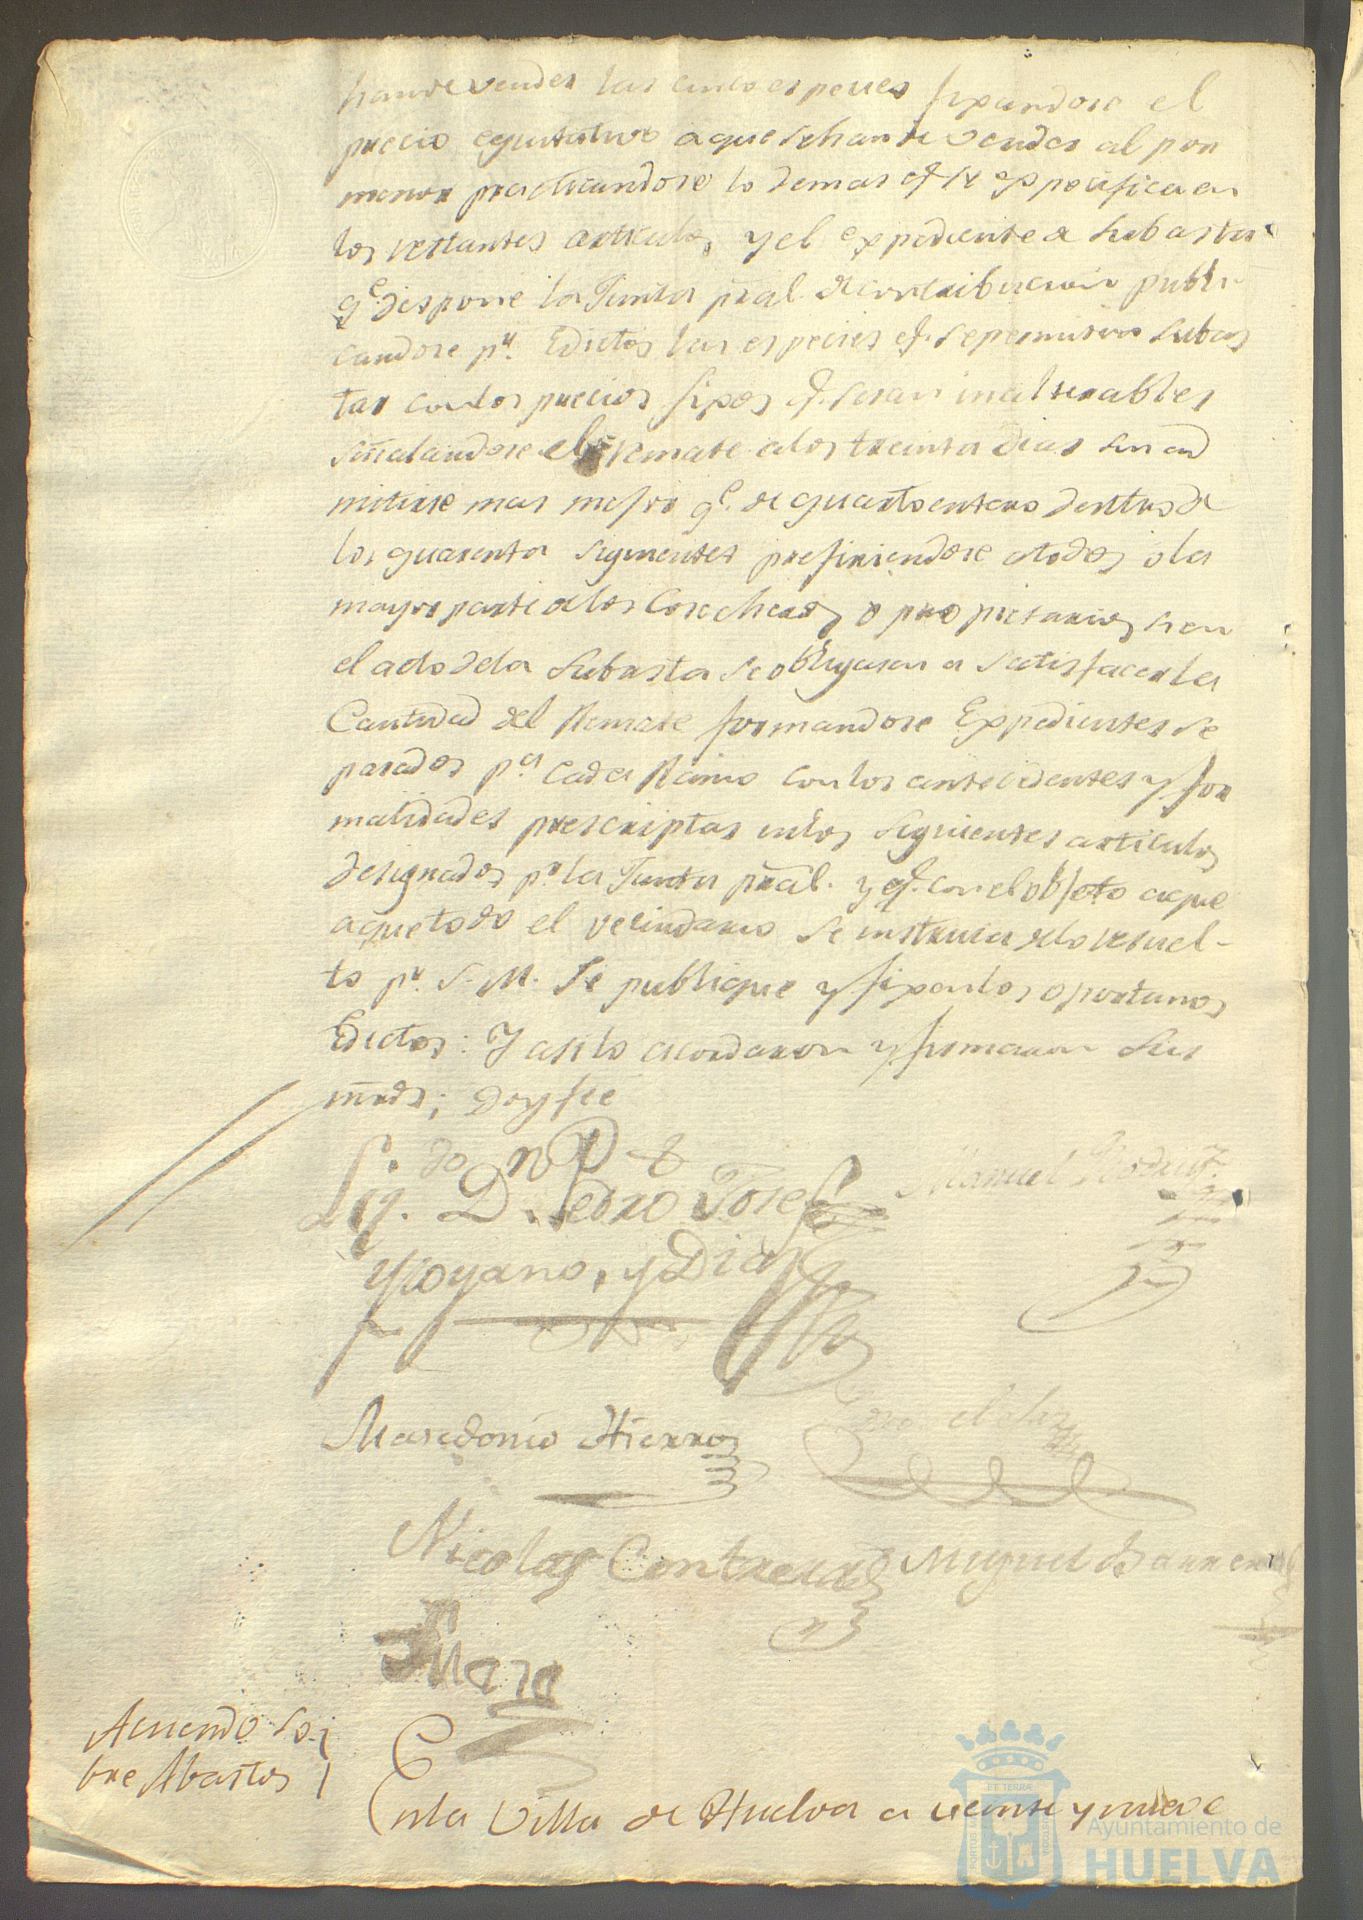 han de vender las cinco especies fixandose el
precio equitativo a que se han de vender al por
menor practicandose lo demas q.e se especifica en
los restantes articulos, y el expediente a subasta
q.e dispone la Junta pral. de contribucion publi-
candose p.r Edictos las especies q.e se permitan subas
tar con los precios fixos q.e seran inalterables
señalandose el remate a los treinta dias sin ad
mitirse mas mejora q.e de quarto entero dentro de
los quarenta siguientes prefiriendose a todos o la
mayor parte de los Cosecheros o propietarios si en
el acto de la subasta se obligasen a satisfacer la
Cantidad del Remate formandose Expedientes se
parados p.a cada Ramo con los antecedentes y for
malidades prescriptas en los siguientes articulos
designados p.r la Junta pral. y q.e con el objeto de que
aque todo el vecindario se instruia de lo resuel-
to p.r S. M. se publique y fixen los oportunos
Edictos: Y asi lo acordaron y firmaron sus
mrds; doy fe
Lizdo. Dn Pedro Josef
Moyano, y Diaz
Manuel Rodrig.z
Macedonio Hierro
Nicolas Contreras
Miguel Barrera
Acuerdo so-
bre Abastos
En la Villa de Huelva a veinte y nueve
ET TERRÆ
PORTUS MARIS
CUSTODIA
Ayuntamiento de
HUELVA